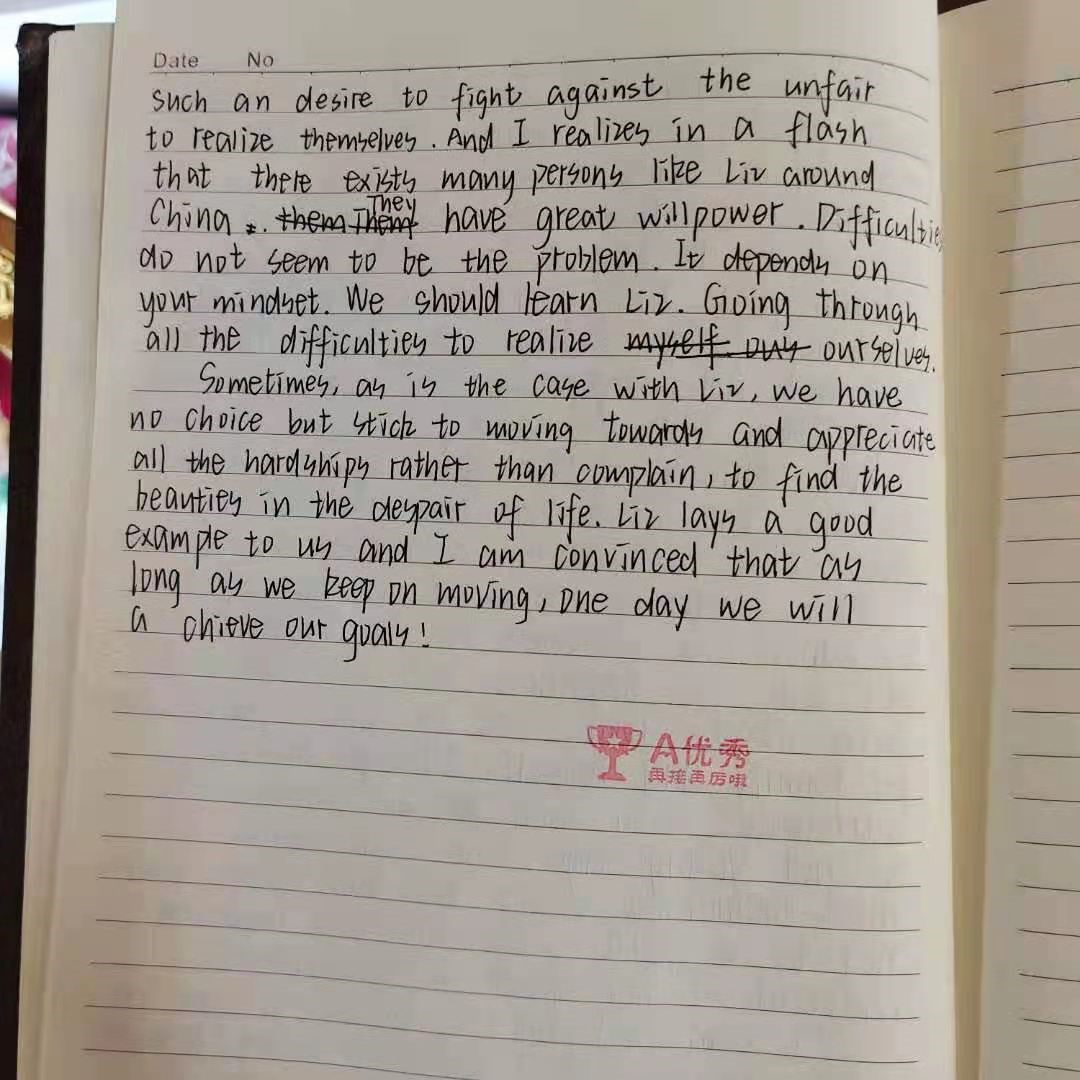 Date No
such an desire to fight against the unfair
to realize themselves. And I realizes in a flash
that there exists many persons like Liz around
China. them Them They have great willpower. Difficulties
do not seem to be the problem. It depends on
your mindset. We should learn Liz. Going through
all the difficulties to realize myself ours ourselves.
Sometimes, as is the case with Liz, we have
no choice but stick to moving towards and appreciate
all the hardships rather than complain, to find the
beauties in the despair of life. Liz lays a good
example to us and I am convinced that as
long as we keep on moving, one day we will
a chieve our goals!
A优秀
再接再厉哦